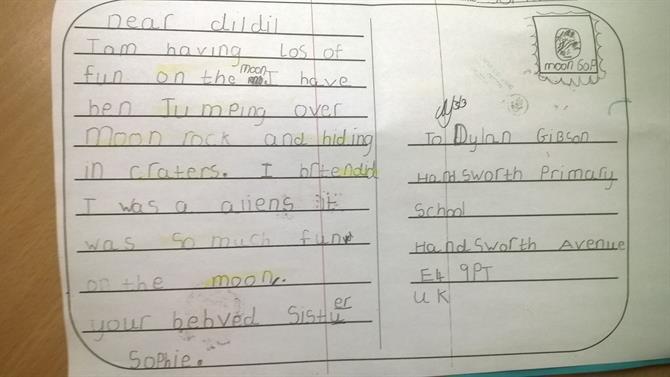 near dildil
I am having los of
fun on the moon. I have
ben Jumping over
moon rock and hiding
in craters. I brtendid
I was a aliens it
was so much fun
on the moon.
your beloved Sister
Sophie.
moon GoP
To Dylan Gibson
Handsworth Primary
School
Handsworth Avenue
E4 9PT
UK